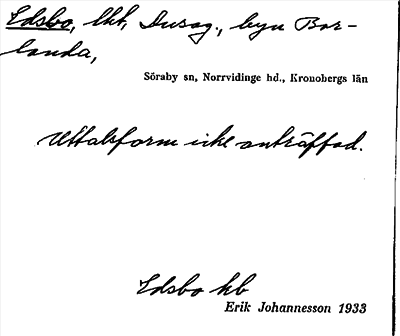 Edsbo, lht, Dusag., byn Bor-
landa,
Söraby sn, Norrvidinge hd., Kronobergs län
Uttalsform icke anträffad.
Edsbo hb
Erik Johannesson 1933